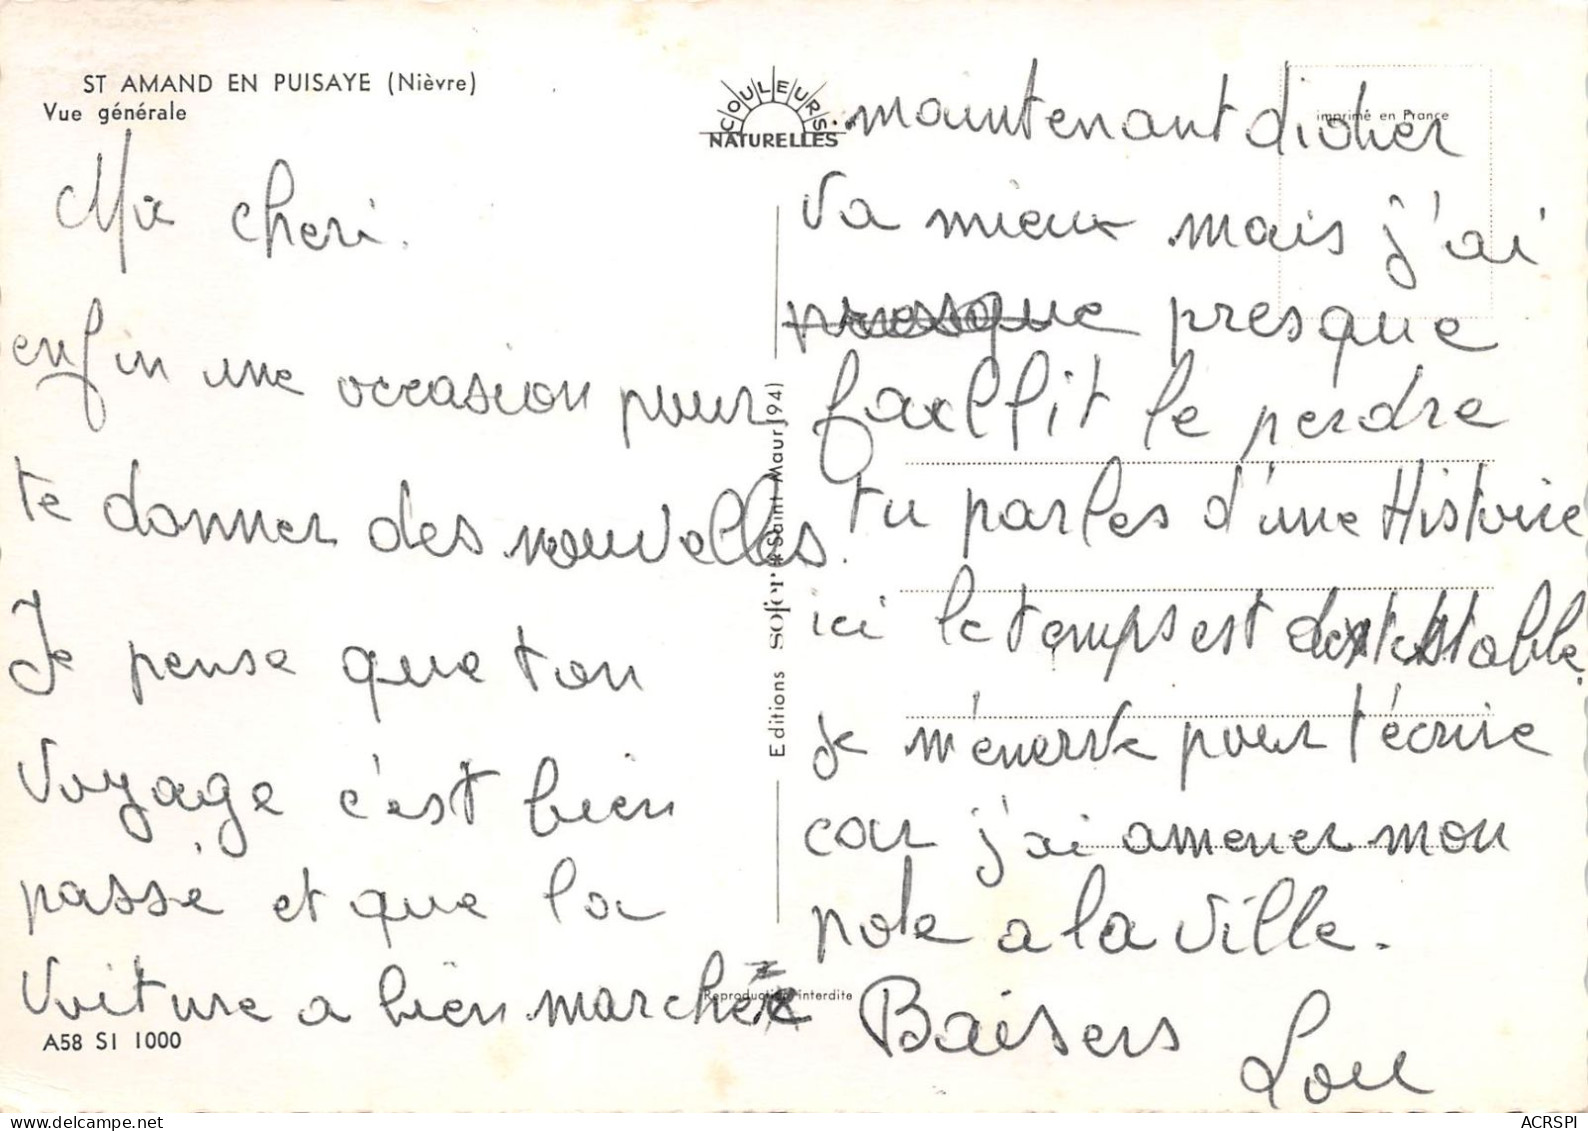 ST AMAND EN PUISAYE (Nièvre)
Vue générale
Ma cheri.
enfin une occasion pour
te donner des nouvelles.
Je pense que ton
voyage c'est bien
passé et que la
voiture a bien marché
A58 SI 1000
COULEURS
NATURELLES
Editions sofer * Saint Maur (94)
Reproduction interdite
imprimé en France
maintenant didier
va mieux mais j'ai
presque presque
faillit le perdre
tu parles d'une Histoire
ici le temps est detestable.
je m'énerve pour t'écrire
car j'ai amener mon
pote a la ville.
Baisers
Lou
ACRSPI